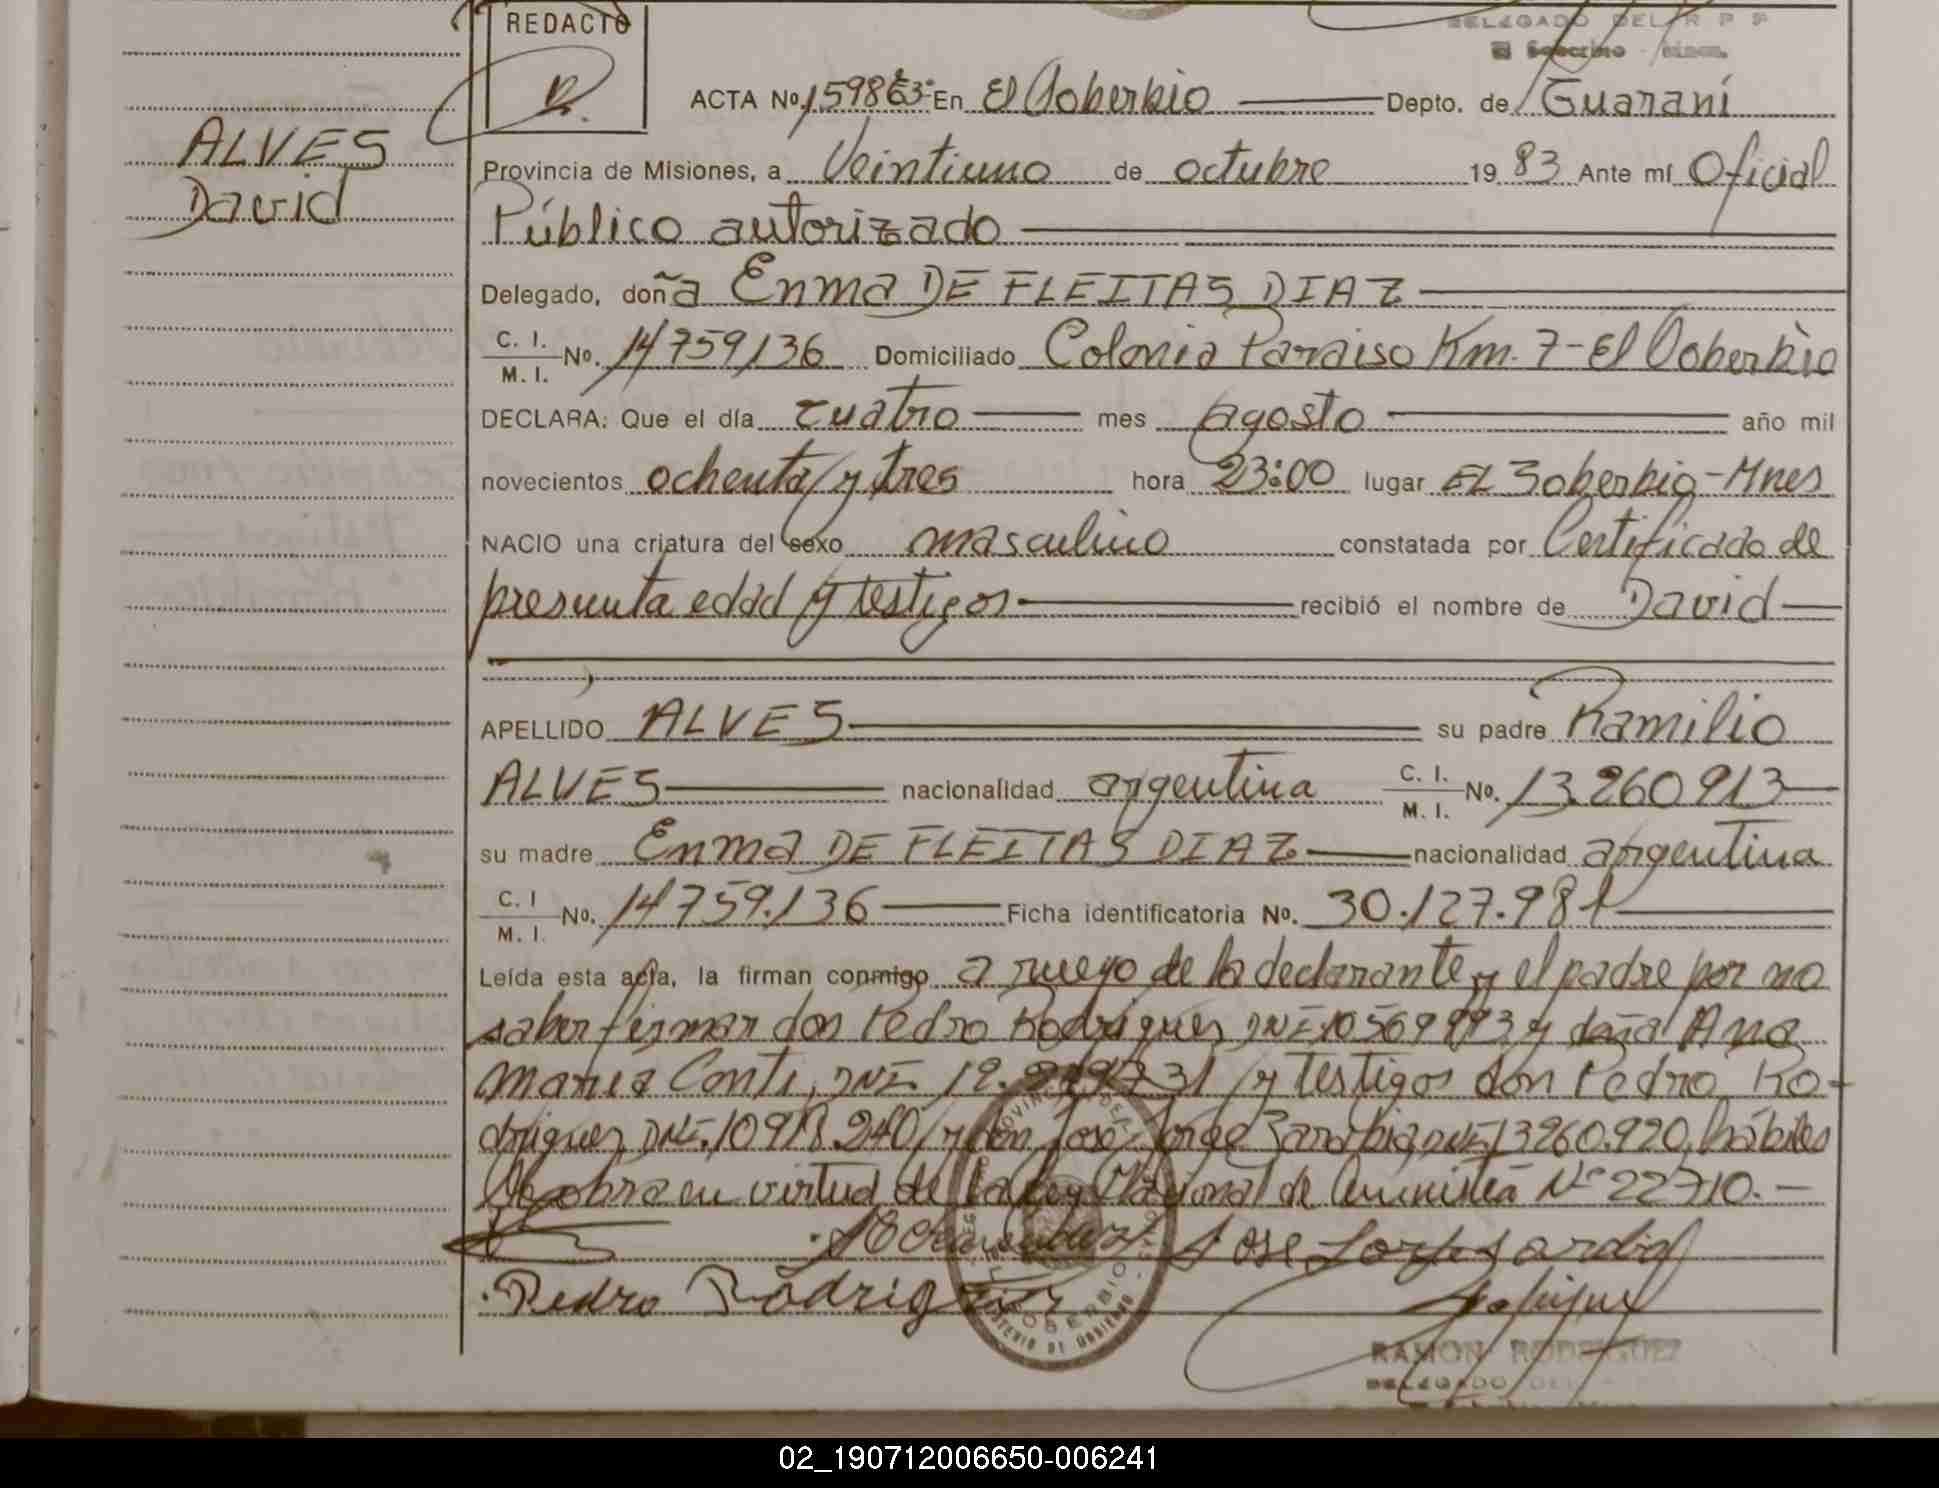 REDACTO
DELEGADO DEL R P P
El Soberbio
ACTA Nº 159863 En El Soberbio Depto. de Guaraní
ALVES
David
Provincia de Misiones, a Veintiuno de octubre 19 83 Ante mí Oficial
Público autorizado
Delegado, doña Enma DE FLEITAS DIAZ
C. I.
M. I. Nº. 14759136 Domiciliado Colonia Paraiso Km. 7 - El Soberbio
DECLARA: Que el día cuatro mes agosto año mil
novecientos ochenta y tres hora 23:00 lugar EL Soberbio - Mnes
NACIO una criatura del sexo masculino constatada por Certificado de
presunta edad y testigos recibió el nombre de David
APELLIDO ALVES su padre Ramilio
ALVES nacionalidad argentina C. I. M. I. Nº. 13.260913
su madre Enma DE FLEITAS DIAZ nacionalidad argentina
C. I
M. I. Nº. 14759.136 Ficha identificatoria Nº. 30.127.981
Leída esta acta, la firman conmigo a ruego de la declarante y el padre por no
saber firmar don Pedro Rodriguez DNI y doña Ana
Maria Conti, DNI. y testigos don Pedro Ro-
driguez DNI. y don José Jorge DNI 13260.920, hábiles
en virtud de la Ley Nacional de Amnistía Nº 22710.-
Jose Jorge
Pedro Rodriguez
RAMON RODRIGUEZ
DELEGADO DEL
02_190712006650-006241